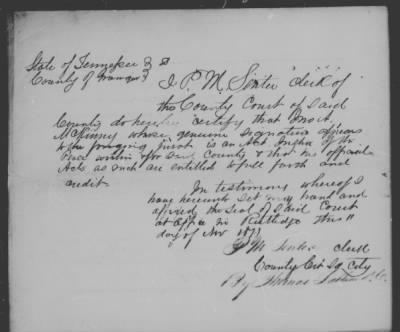 State of Tennessee } S
County of Grainger }
I P. M. Senter clerk of
the County Court of said
County do hereby certify that Jno A.
McKinney whose genuine signature appears
to the foregoing Jurat is an Acting Justice of the
Peace within & for said County & that his official
Acts as such are entitled to full faith and
credit.
In testimony whereof I
have hereunto set my hand and
affixed the Seal of Said Court
at Office in Rutledge this 11
day of Nov 1871
P M Senter clerk
County Court
By Thomas